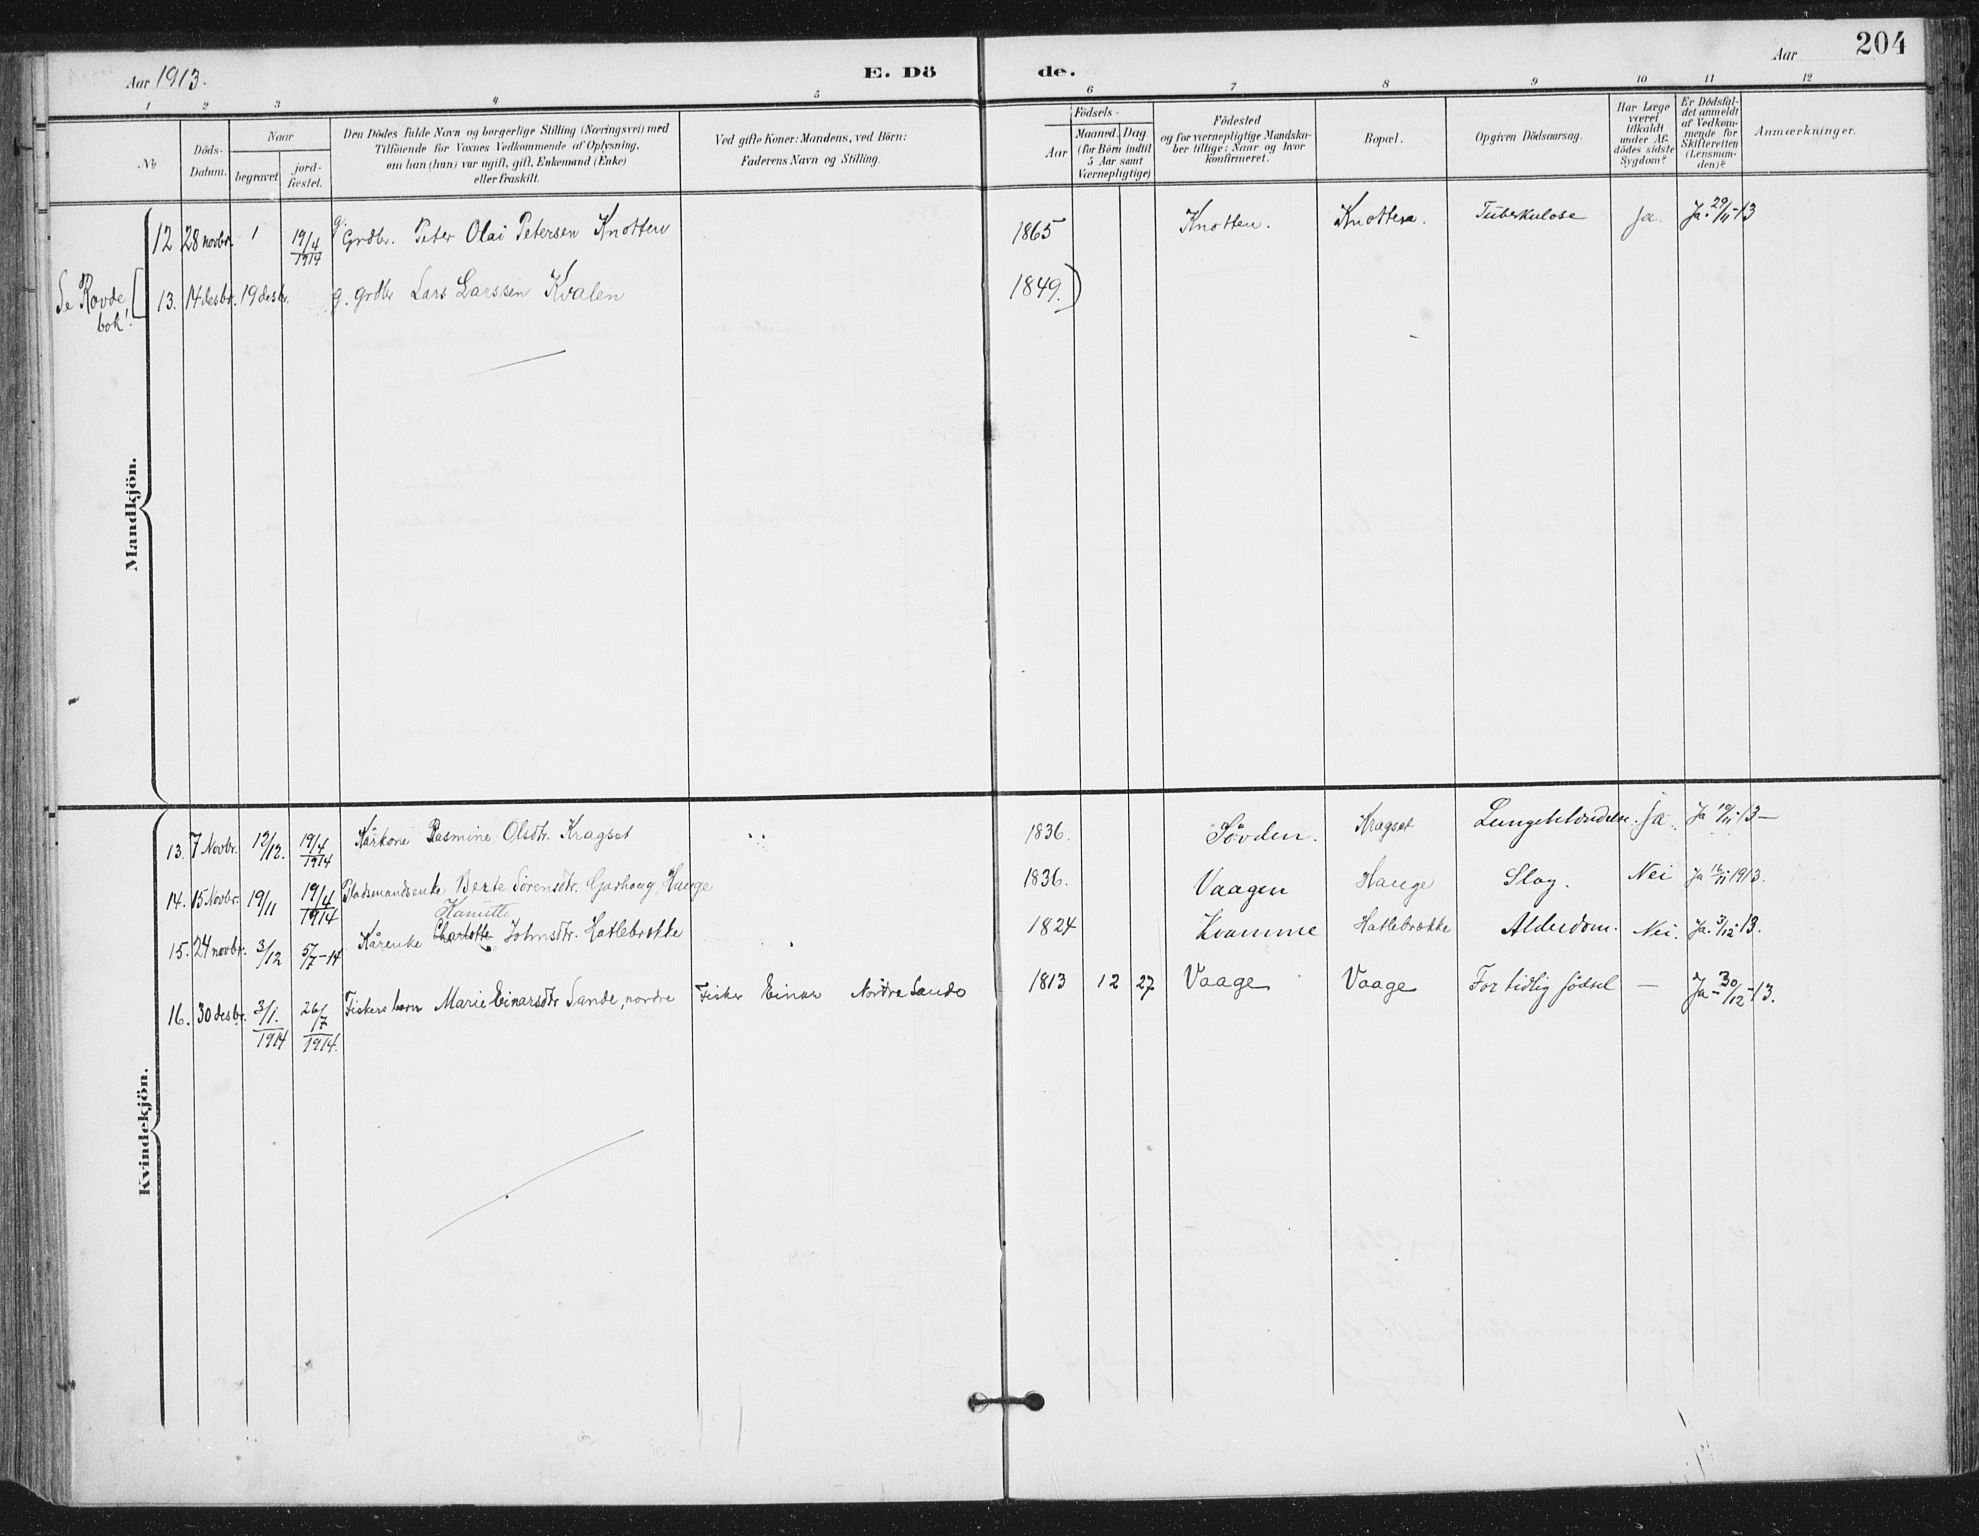 204
Aar 1913.
E. Dö de.
Aar
1 2 3 4 5 6 7 8 9 10 11 12
No
Döds-Datum.
Naar
begravet
jord-fæstet.
Den Dödes fulde Navn og borgerlige Stilling (Næringsvei) med
Tilföiende for Voxnes Vedkommende af Oplysning,
om han (hun) var ugift, gift, Enkemand (Enke)
eller fraskilt.
Ved gifte Koner: Mandens, ved Börn:
Faderens Navn og Stilling.
Födsels-
Aar
Maaned. Dag
(for Börn indtil
5 Aar samt
Værnepligtige)
Födested
og for værnepligtige Mandska-
ber tillige: Naar og hvor
konfirmeret.
Bopæl.
Opgiven Dödsaarsag.
Har Læge
været
tilkaldt
under Af-
dödes sidste
Sygdom?
Er Dödsfal-
det anmeldt
af Vedkom-
mende for
Skifteretten
(Lensman-
den)?
Anmærkninger.
Mandkjön.
12 28 novbr. 1 19/4 1914 g. Grdbr. Peter Olai Petersen Knotten 1865 Knotten. Knotten. Tuberkulose Ja. Ja. 29/11-13
Se Rovde bok! 13. 14 desbr. 19 desbr. g. grdbr Lars Larssen Kvalen 1849.)
Kvindekjön.
13. 7 Novbr. 12/12. 19/4 1914 Kårkone Rasmine Olsdtr. Kragset 1836. Søvden. Kragset Lungebetændelse. Ja. Ja 10/11-13
14. 15 Novbr. 19/11 19/4 1914 Pladsmandsenke Berte Sørensdtr. Garhoug, Hauge 1836. Vaagen Hauge Slag. Nei Ja 16/11 1913.
Hanitte
15. 24 novbr. 3/12 5/7-14 Kårenke Charlotte Johnsdtr. Hatlebrekke 1824 Kvamme Hatlebrekke Alderdom. Nei. Ja. 3/12-13.
16. 30 desbr. 3/1. 1914 26/7 1914. Fiskers barn Marie Einarsdtr Sande, nordre Fisker Einar Nordre Sande 1813 12 27 Vaage Vaage For tidlig födsel — Ja-30/12-13.